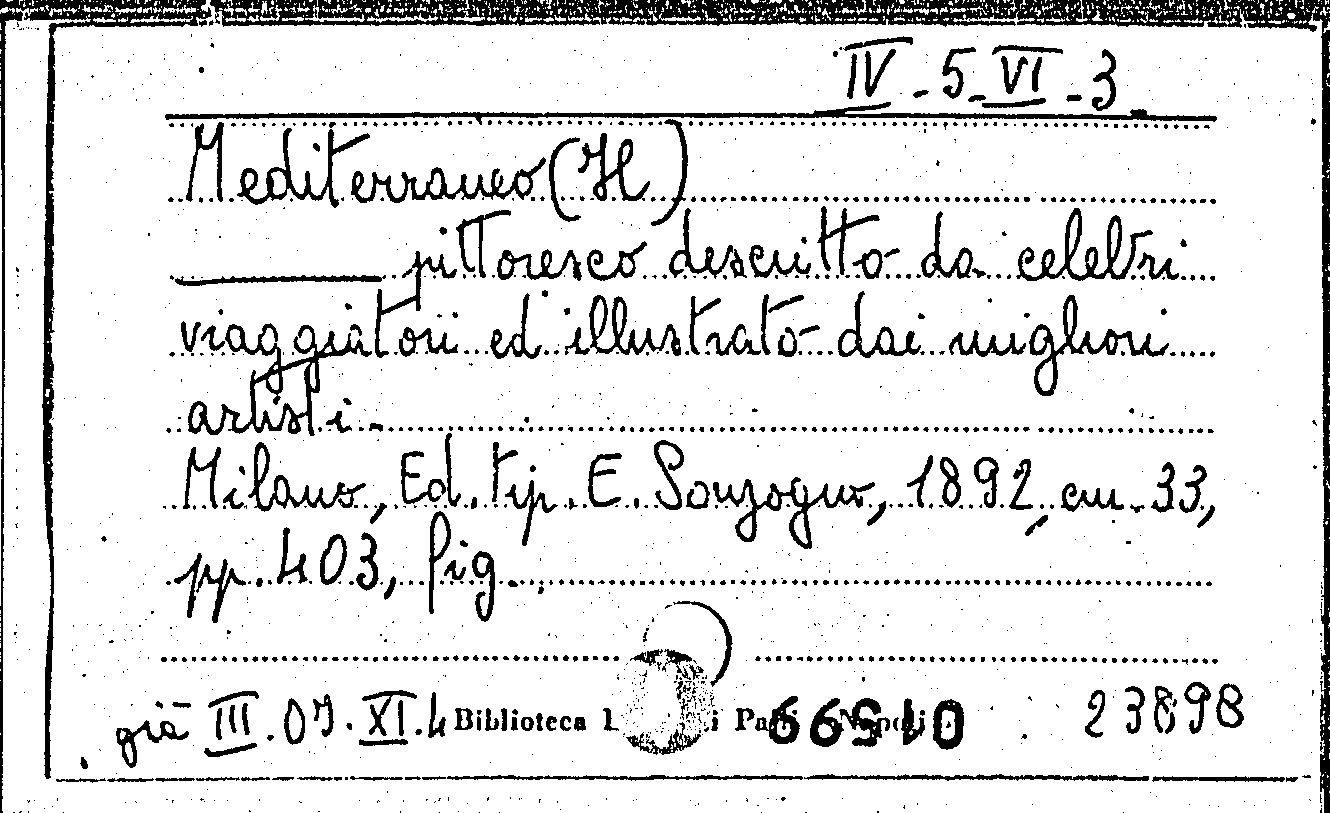 IV - 5 - VI - 3
Mediterraneo (Il)
pittoresco descritto da celebri
viaggiatori ed illustrato dai migliori
artisti -
Milano, Ed. tip. E. Sonzogno, 1892, cm. 33,
pp. 403, fig.
già III. 07. XI. 4 Biblioteca 23898